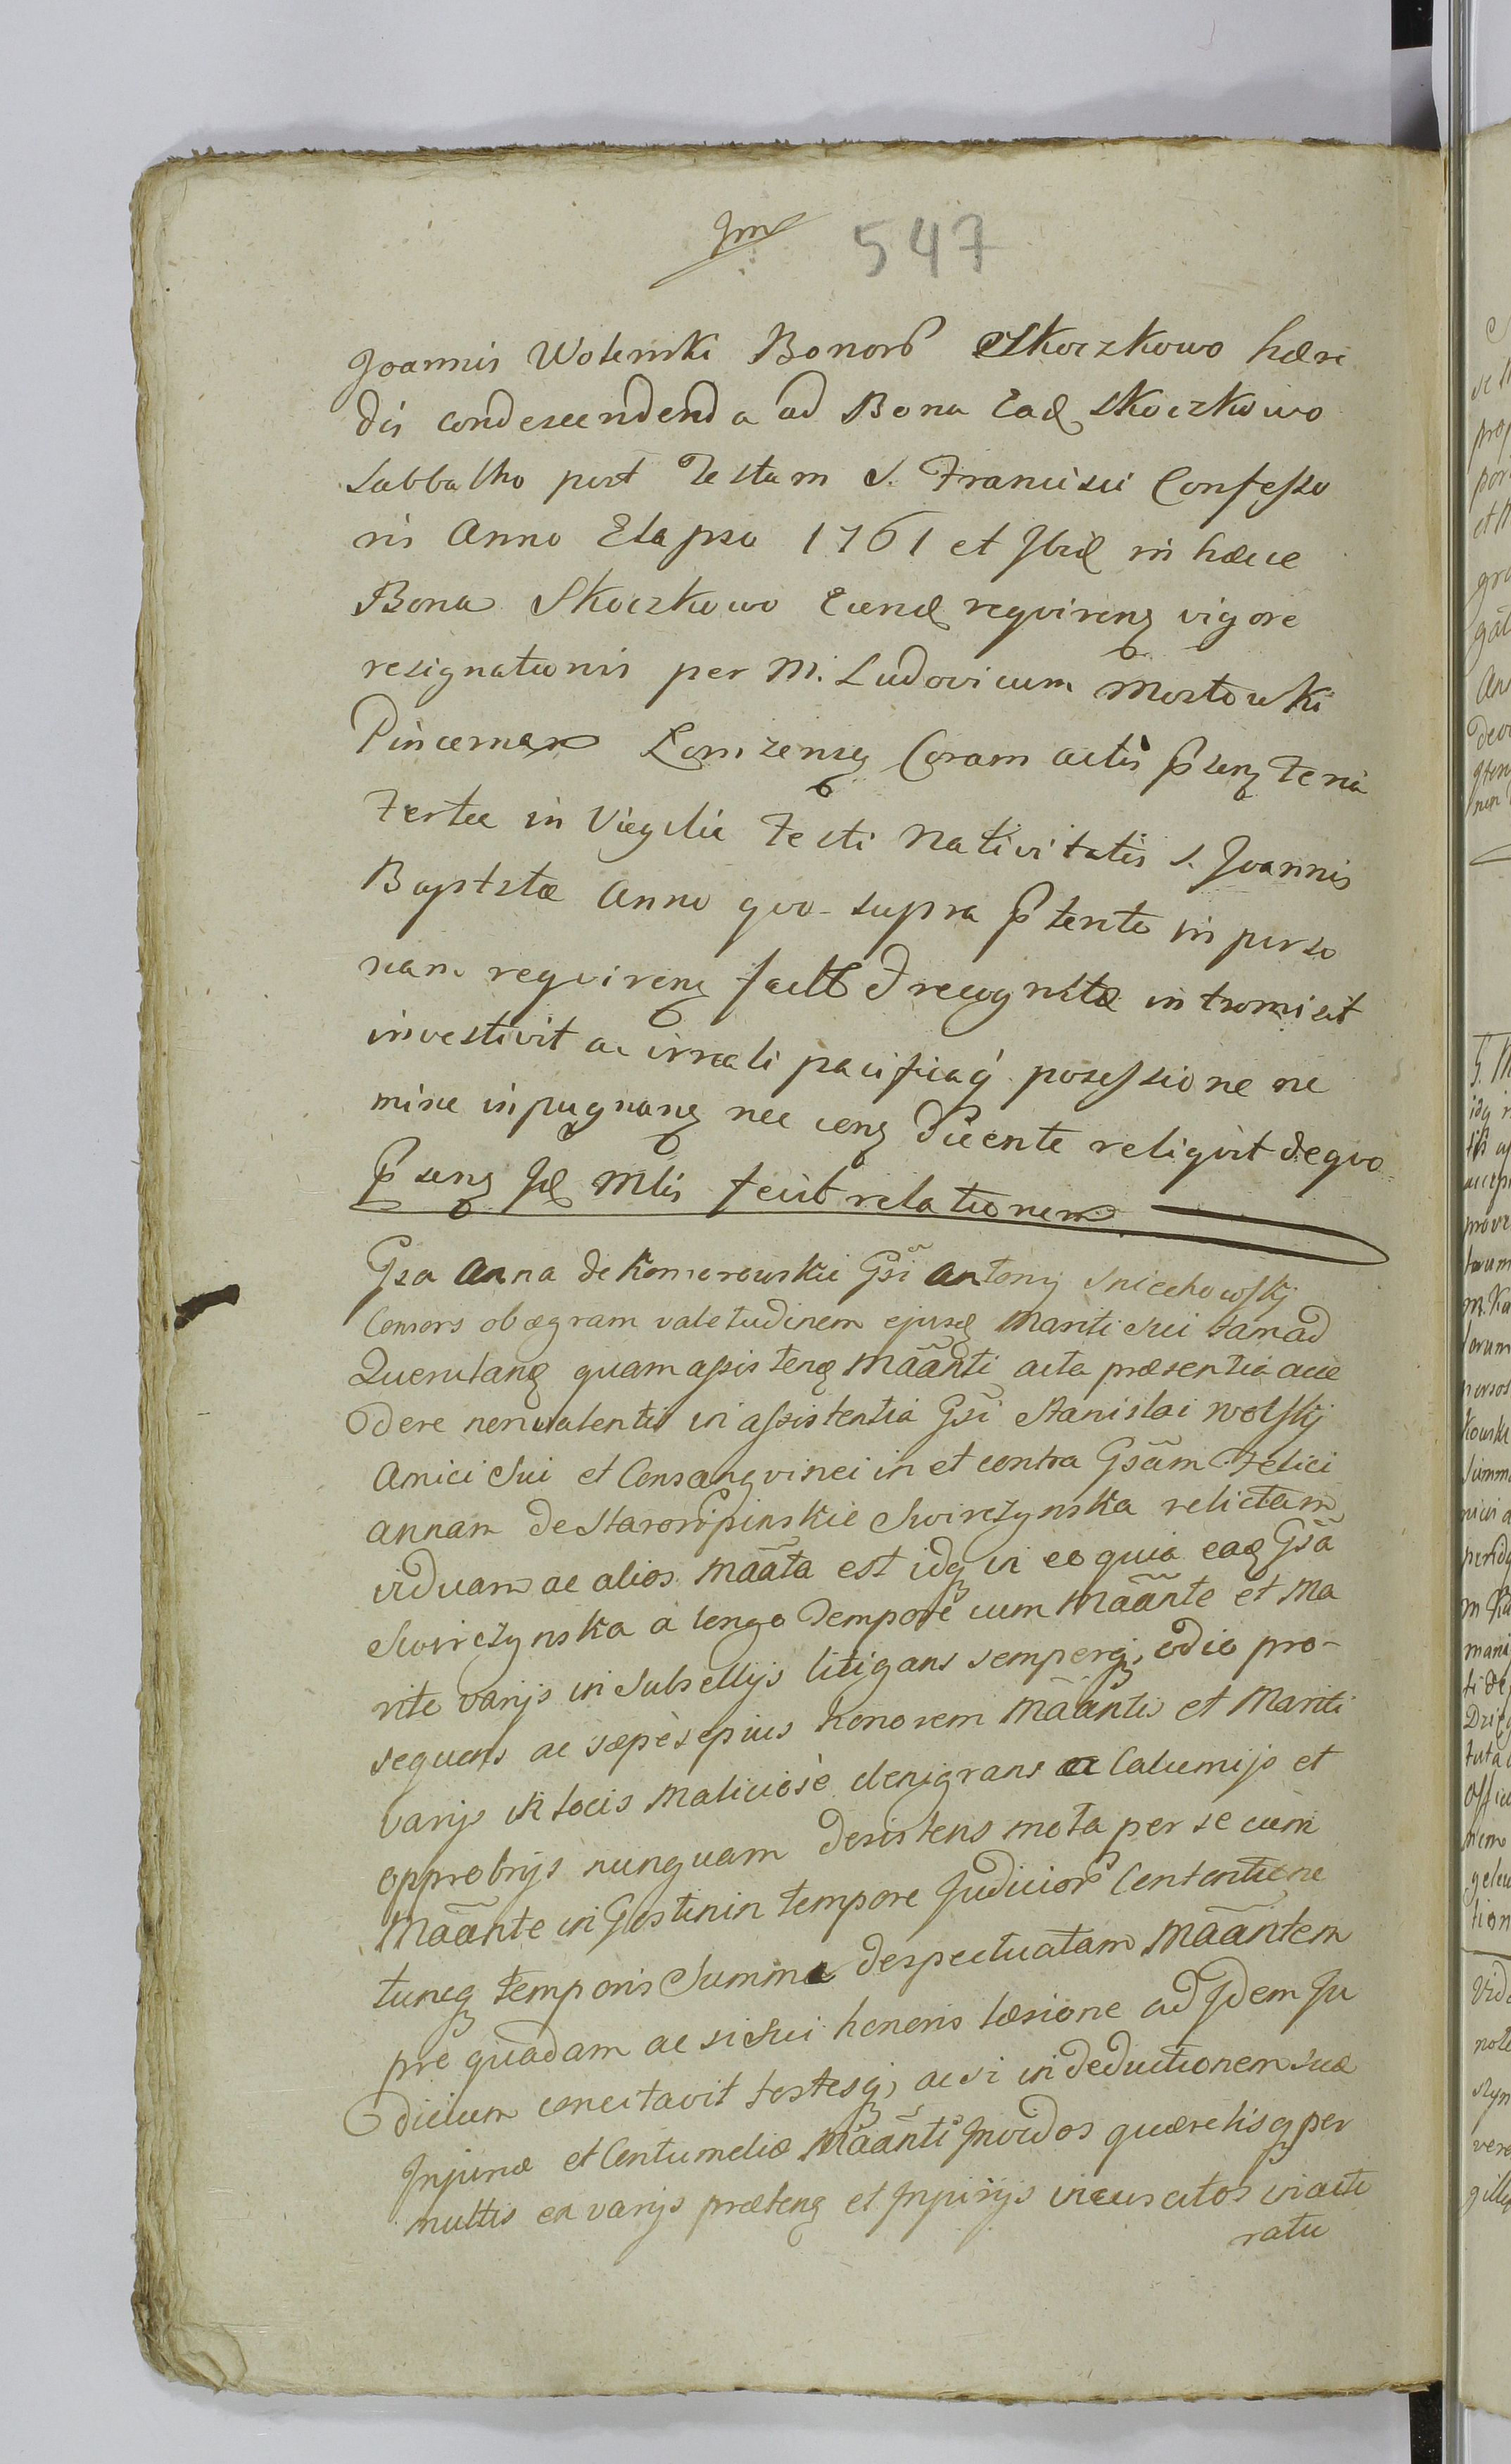 547
Joannis Wolemski Bonorƀ Skoczkowo hære
dis condescendend a ad Bona Ead Skoczkowo
Sabbatho post Festum S. Francisci Confesso
ris Anno Elapso 1761 et Ibid in hæce
Bona Skoczkowo Eund reqvirenq vigore
resignationis per M. Ludovicum Mostowski
Pincernam Lomzensq Coram actis psenq Feria
Tertia in Viegilia Festi Nativitatis S. Joannis
Baptistæ Anno qvo supra p tente in perso
nam reqvirenq fact recognitæ intromisit
investivit ac in reali pacificaq possessione ne
mine inpugnanq nec conq dicente reliqvit deqvo
psenq Id Mlis fecit relationem
Gsa Anna de Komorowskie Gsi Antonij Sniechowskj
Consors ob ægram valetudinem ejusd Mariti sui tam ad
Querulanq quam assistenq Mãanti acta præsentia acce
dere non valentis in assistentia Gsi Stanislai Wolskj
Amici Sui et Consangvinei in et contra Gsãm Felici
annam de Staroripinskie Swirczynska relictam
viduam ac alios Mãata est idq in eo quia ead Gsã
Swirczynska a longo tempore cum Mãante et Ma
rito varijs in Subsellijs litigans semperq, odio pro-
sequens ac sæpè sepius honorem Mãantis et Mariti
varijs in locis Maliciosè denigrans ac Calumijs et
opprobrijs nunquam desistens mota per se cum
Mãante in Gostinin tempore Judiciorƀ Contentione
tuncq temporis Summe despectuatam Mãantem
pre quadam ac si sui honoris læsione ad Idem Ju
dicium concitavit testesq, ac si in deductionem suæ
Injuriæ et Contumeliæ Mãanti Invidos quærelisq per
multis ex varijs prætenq et Injurijs incuscitos in acti
ratu